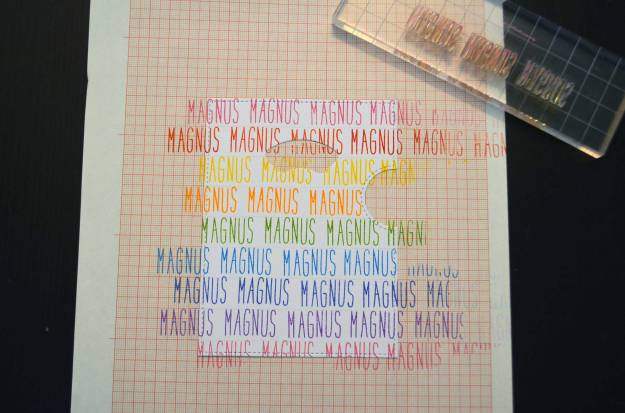 MAGNUS MAGNUS MAGNUS MAGNUS MAGNUS
MAGNUS MAGNUS MAGNUS MAGNUS MAGNUS MAGN
MAGNUS MAGNUS MAGNUS MAGN
MAGNUS MAGNUS MAGNUS
MAGNUS MAGNUS MAGNUS MAGN
MAGNUS MAGNUS MAGNUS MAGNUS MAGNUS
MAGNUS MAGNUS MAGNUS MAGNUS MAG
MAGNUS MAGNUS MAGNUS MAGNUS MAGNUS
MAGNUS MAGNUS MAGNUS MAGNUS